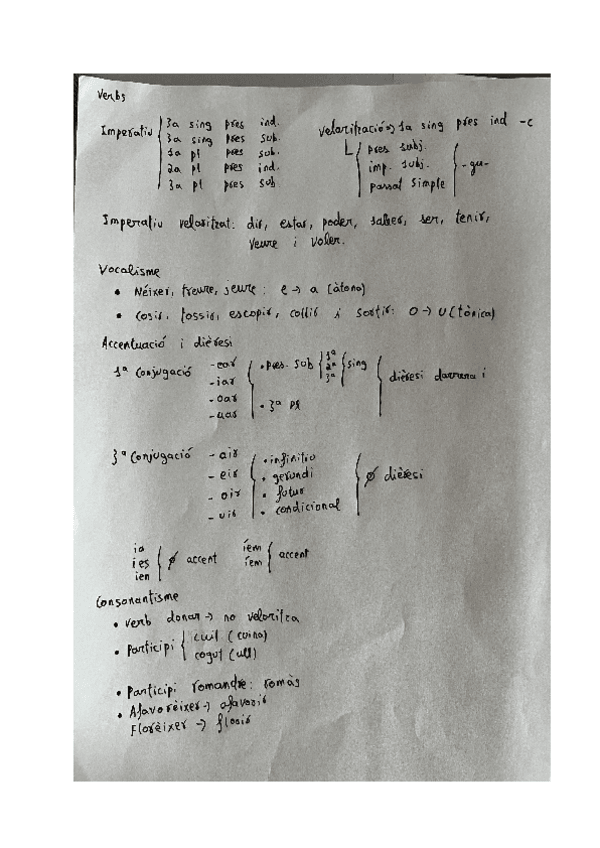 Verbs
Imperatiu { 3a sing pres ind.
3a sing pres sub.
1a pl pres sub.
2a pl pres ind.
3a pl pres sub.
Velarització => 1a sing pres ind -c
pres subj.
imp. subj. } -gu-
passat simple
Imperatiu velaritzat: dir, estar, poder, saber, ser, tenir,
veure i voler.
Vocalisme
• Néixer, treure, seure: e -> a (àtona)
• Cosir, tossir, escopir, collir i sortir: o -> u (tònica)
Accentuació i dièresi
1ª Conjugació
-ear
-iar
-oar
-uar
• pres. sub { 1ª 2ª 3ª } sing
• 3ª pl
dièresi damunt i
3ª Conjugació
-air
-eir
-oir
-uir
• infinitiu
• gerundi
• futur
• condicional
∅ dièresi
ia
ies
ien
∅ accent
íem
íem
accent
Consonantisme
• Verb donar -> no velaritza
• Participi { cuit (cuina)
cogut (ull)
• Participi romandre: romàs
• Afavorèixer -> afavorir
Florèixer -> florir